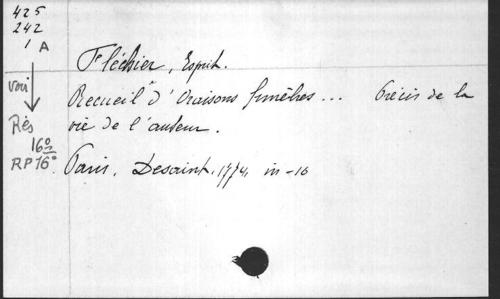 425
242
1 A
Fléchier, Esprit.
voir
Recueil d'Oraisons funèbres... Précis de la
vie de l'auteur.
Rés
16°
RP 16°
Paris, Desaint, 1774, in-16